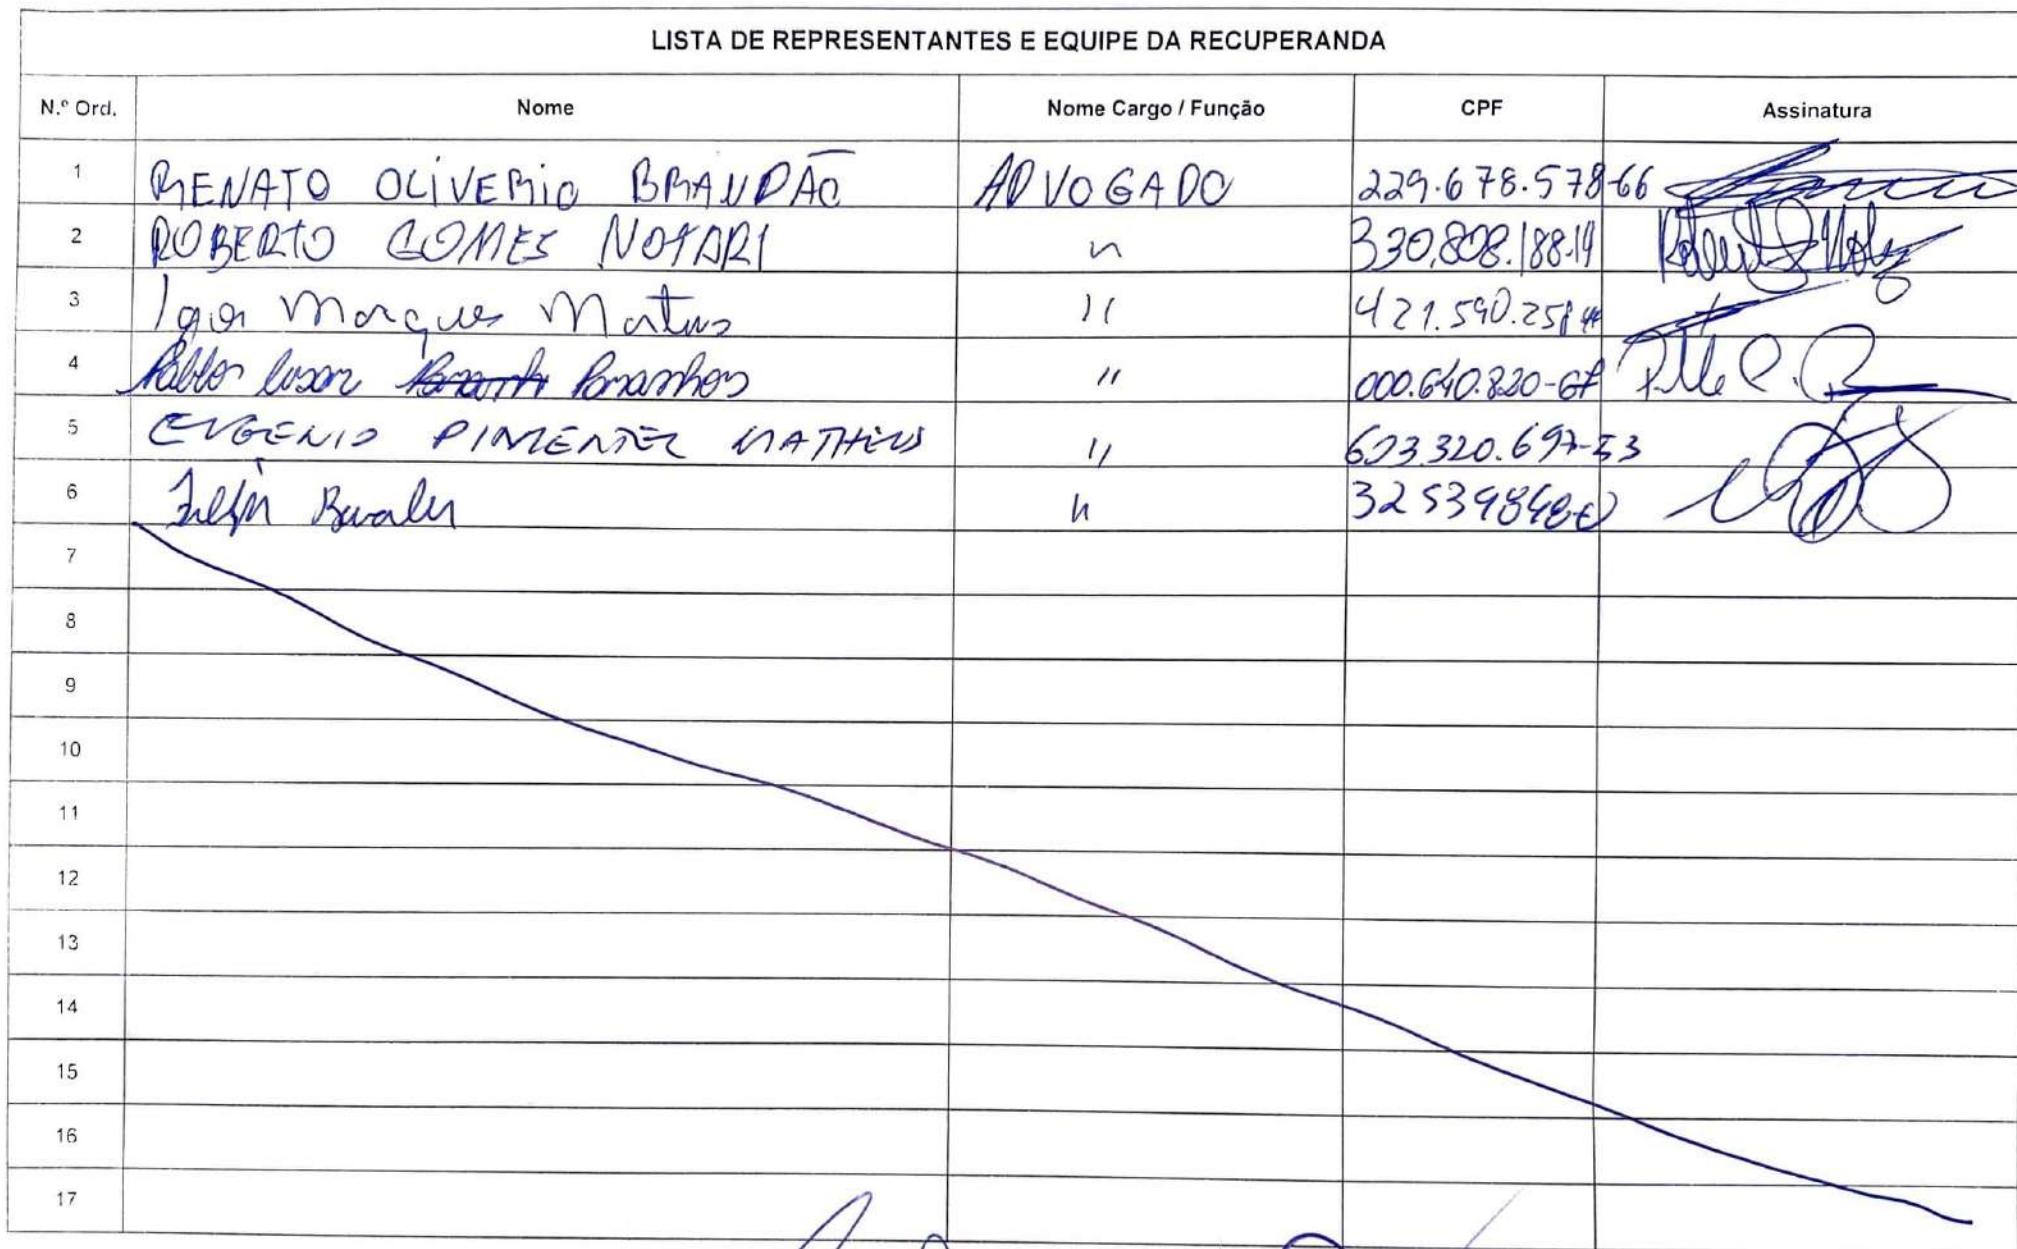 LISTA DE REPRESENTANTES E EQUIPE DA RECUPERANDA
N.º Ord. Nome Nome Cargo / Função CPF Assinatura
1 RENATO OLIVERIO BRANDÃO ADVOGADO 229.678.578-66
2 ROBERTO GOMES NOTARI " 330.808.188-19
3 Igor Marques Martins " 421.590.258
4 Pablo " 000.640.820-67
5 EUGENIO PIMENTEL MATHEUS " 603.320.697-53
6 "
7
8
9
10
11
12
13
14
15
16
17